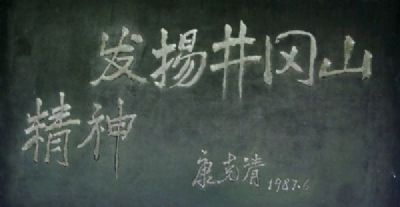 发揚井冈山
精神
康克清 1987.6